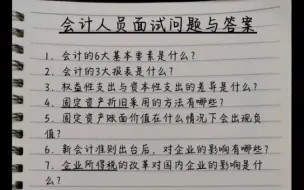 会计人员面试问题与答案
1、会计的6大基本要素是什么?
2、会计的3大报表是什么?
3、权益性支出与资本性支出的差异是什么?
4、固定资产折旧采用的方法有哪些?
5、固定资产账面价值在什么情况下会出现负
值?
6、新会计准则出台后，对企业的影响有哪些?
7、企业所得税的改革对国内企业的影响是什
么?